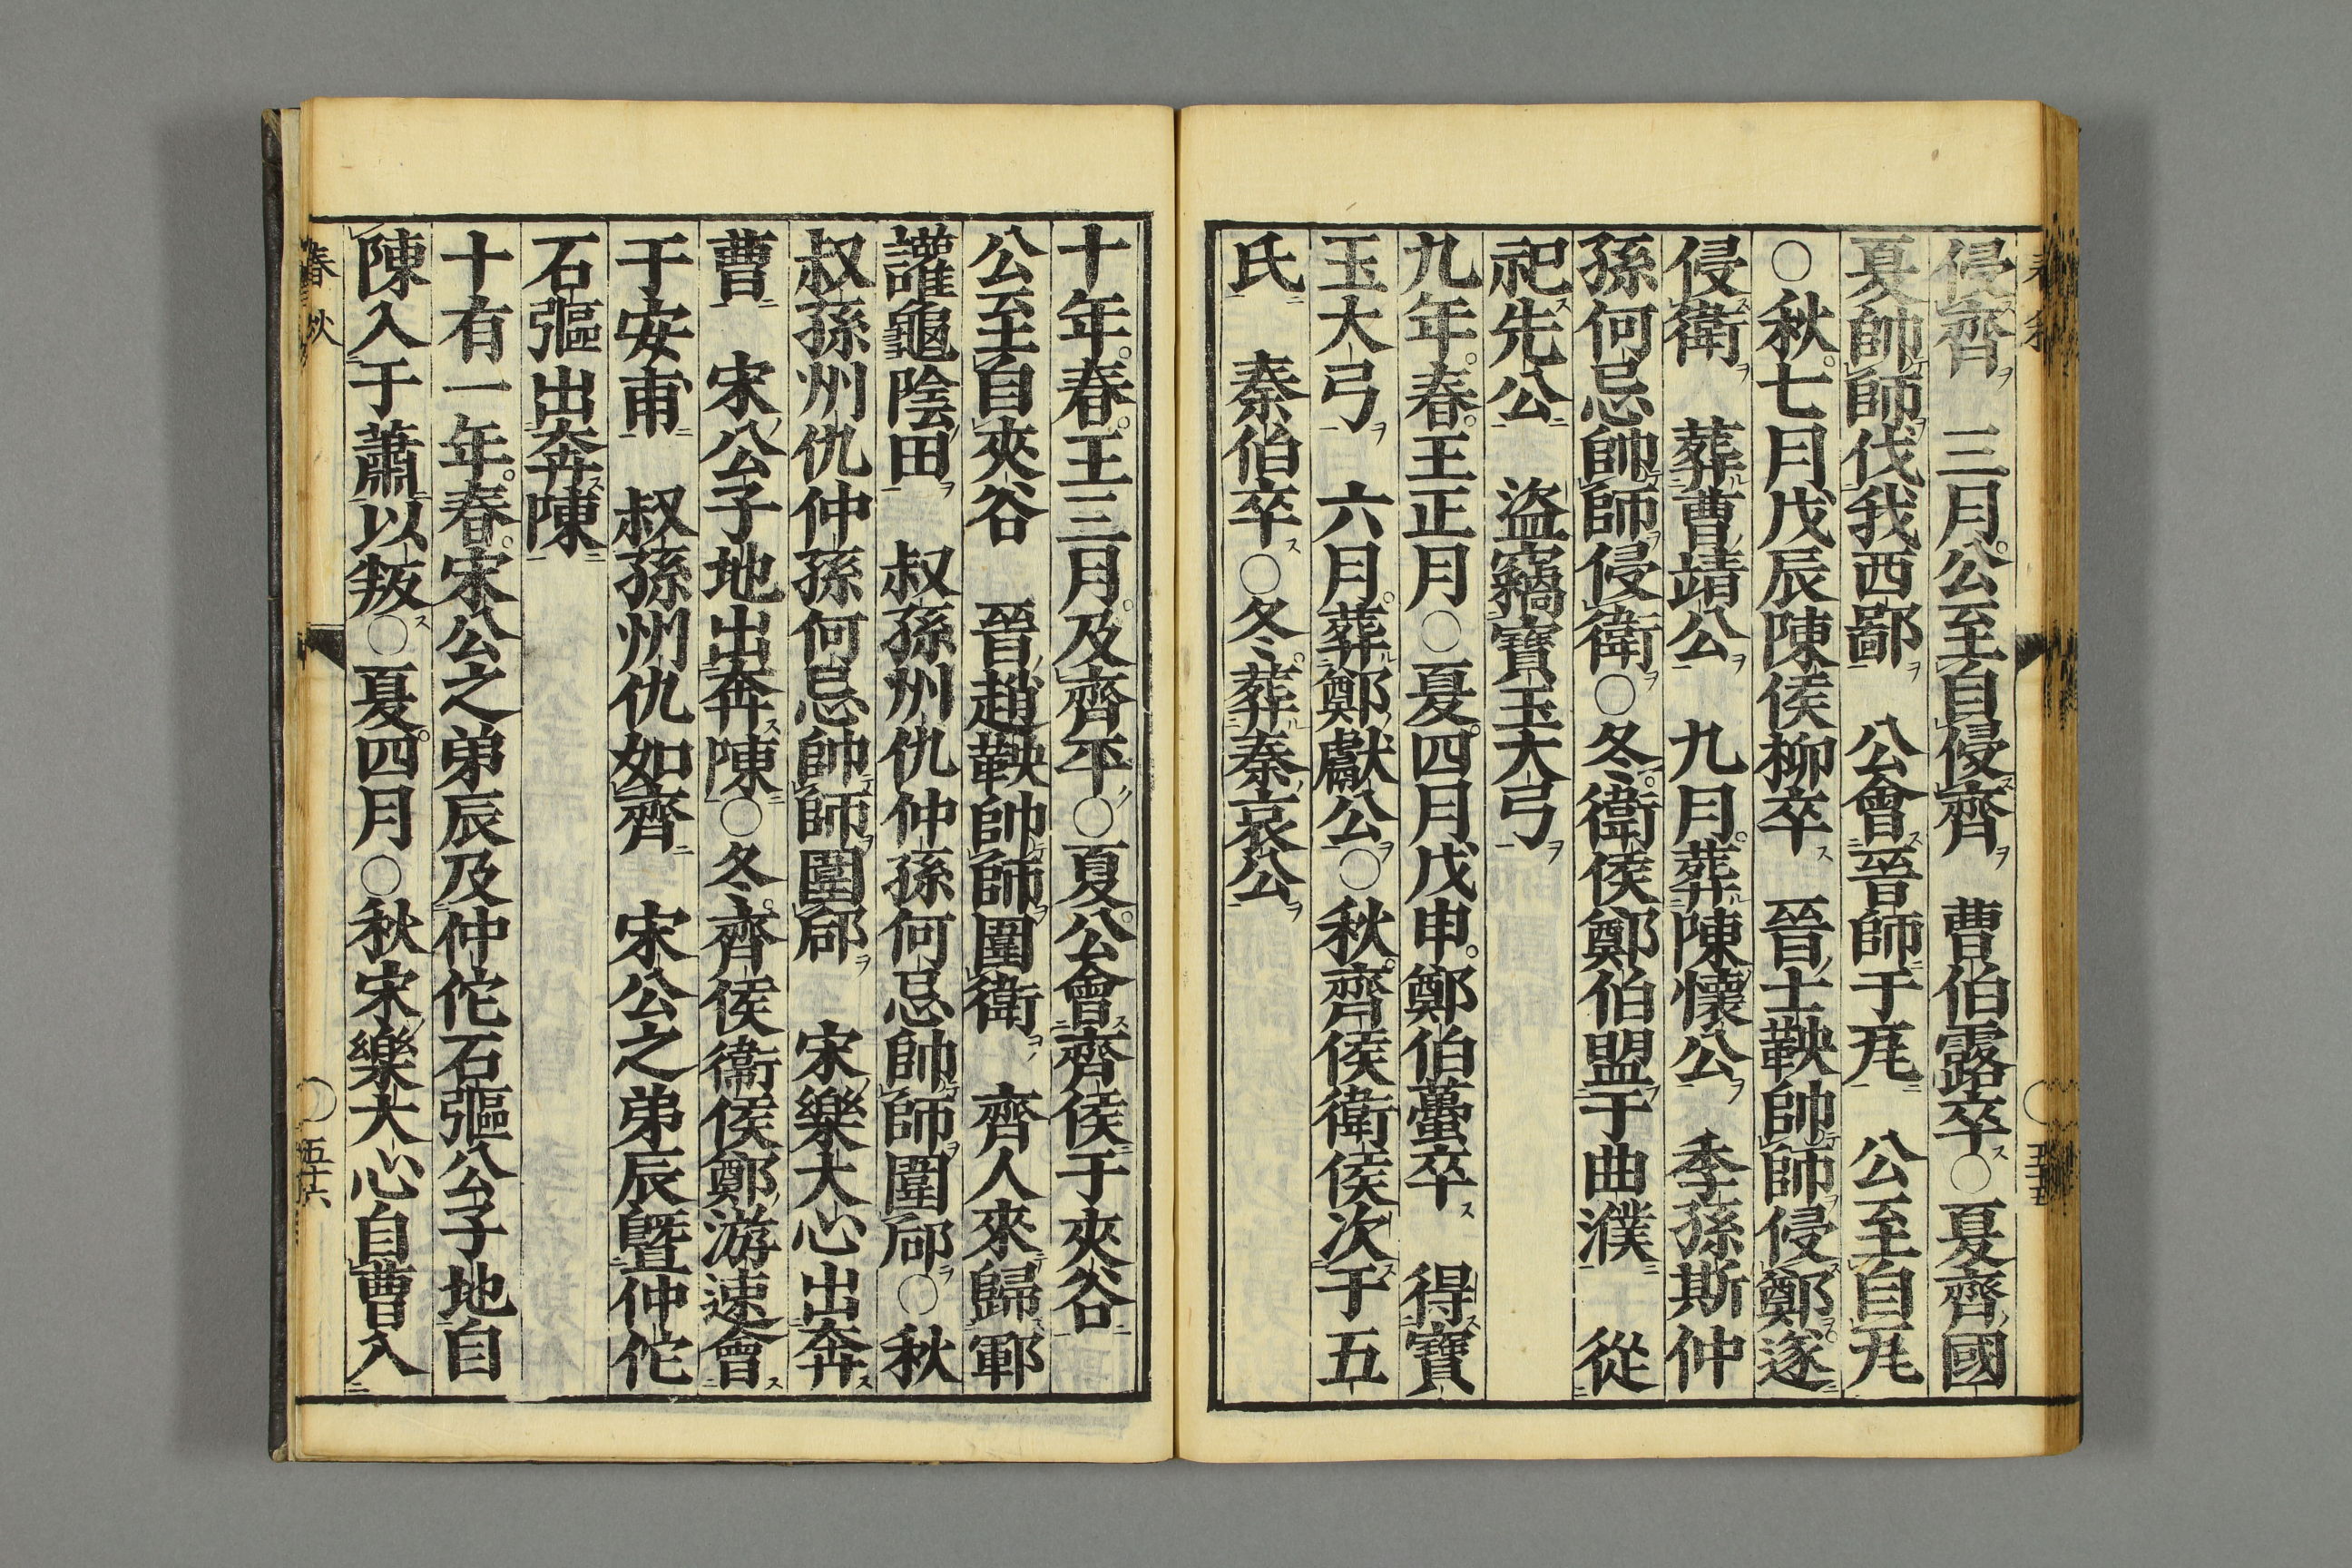 侵齊　三月公至自侵齊　曹伯露卒○夏齊國
夏帥師伐我西鄙　公會晉師于瓦　公至自瓦
○秋七月戊辰陳侯柳卒　晉士鞅帥師侵鄭遂
侵衛　葬曹靖公　九月葬陳懷公　季孫斯仲
孫何忌帥師侵衛○冬衛侯鄭伯盟于曲濮　從
祀先公　盜竊寶玉大弓
九年春王正月○夏四月戊申鄭伯蠆卒　得寶
玉大弓　六月葬鄭獻公○秋齊侯衛侯次于五
氏　秦伯卒○冬葬秦哀公
十年春王三月及齊平○夏公會齊侯于夾谷
公至自夾谷　晉趙鞅帥師圍衛　齊人來歸鄆
讙龜陰田　叔孫州仇仲孫何忌帥師圍郈○秋
叔孫州仇仲孫何忌帥師圍郈　宋樂大心出奔
曹　宋公子地出奔陳○冬齊侯衞侯鄭游速會
于安甫　叔孫州仇如齊　宋公之弟辰暨仲佗
石彄出奔陳
十有一年春宋公之弟辰及仲佗石彄公子地自
陳入于蕭以叛○夏四月○秋宋樂大心自曹入
春秋　○五十六